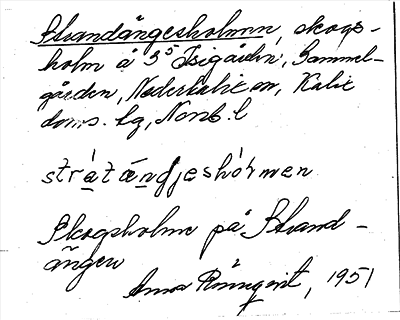 Strandängesholmen, skogs-
holm å 3⁵ Isigården, Gammel-
gården, Nederkalix sn, Kalix
doms. lg, Norrb. l
strátǽndjeshórmen
Skogsholme på Strand-
ängen
Anna Rönnqvist, 1951